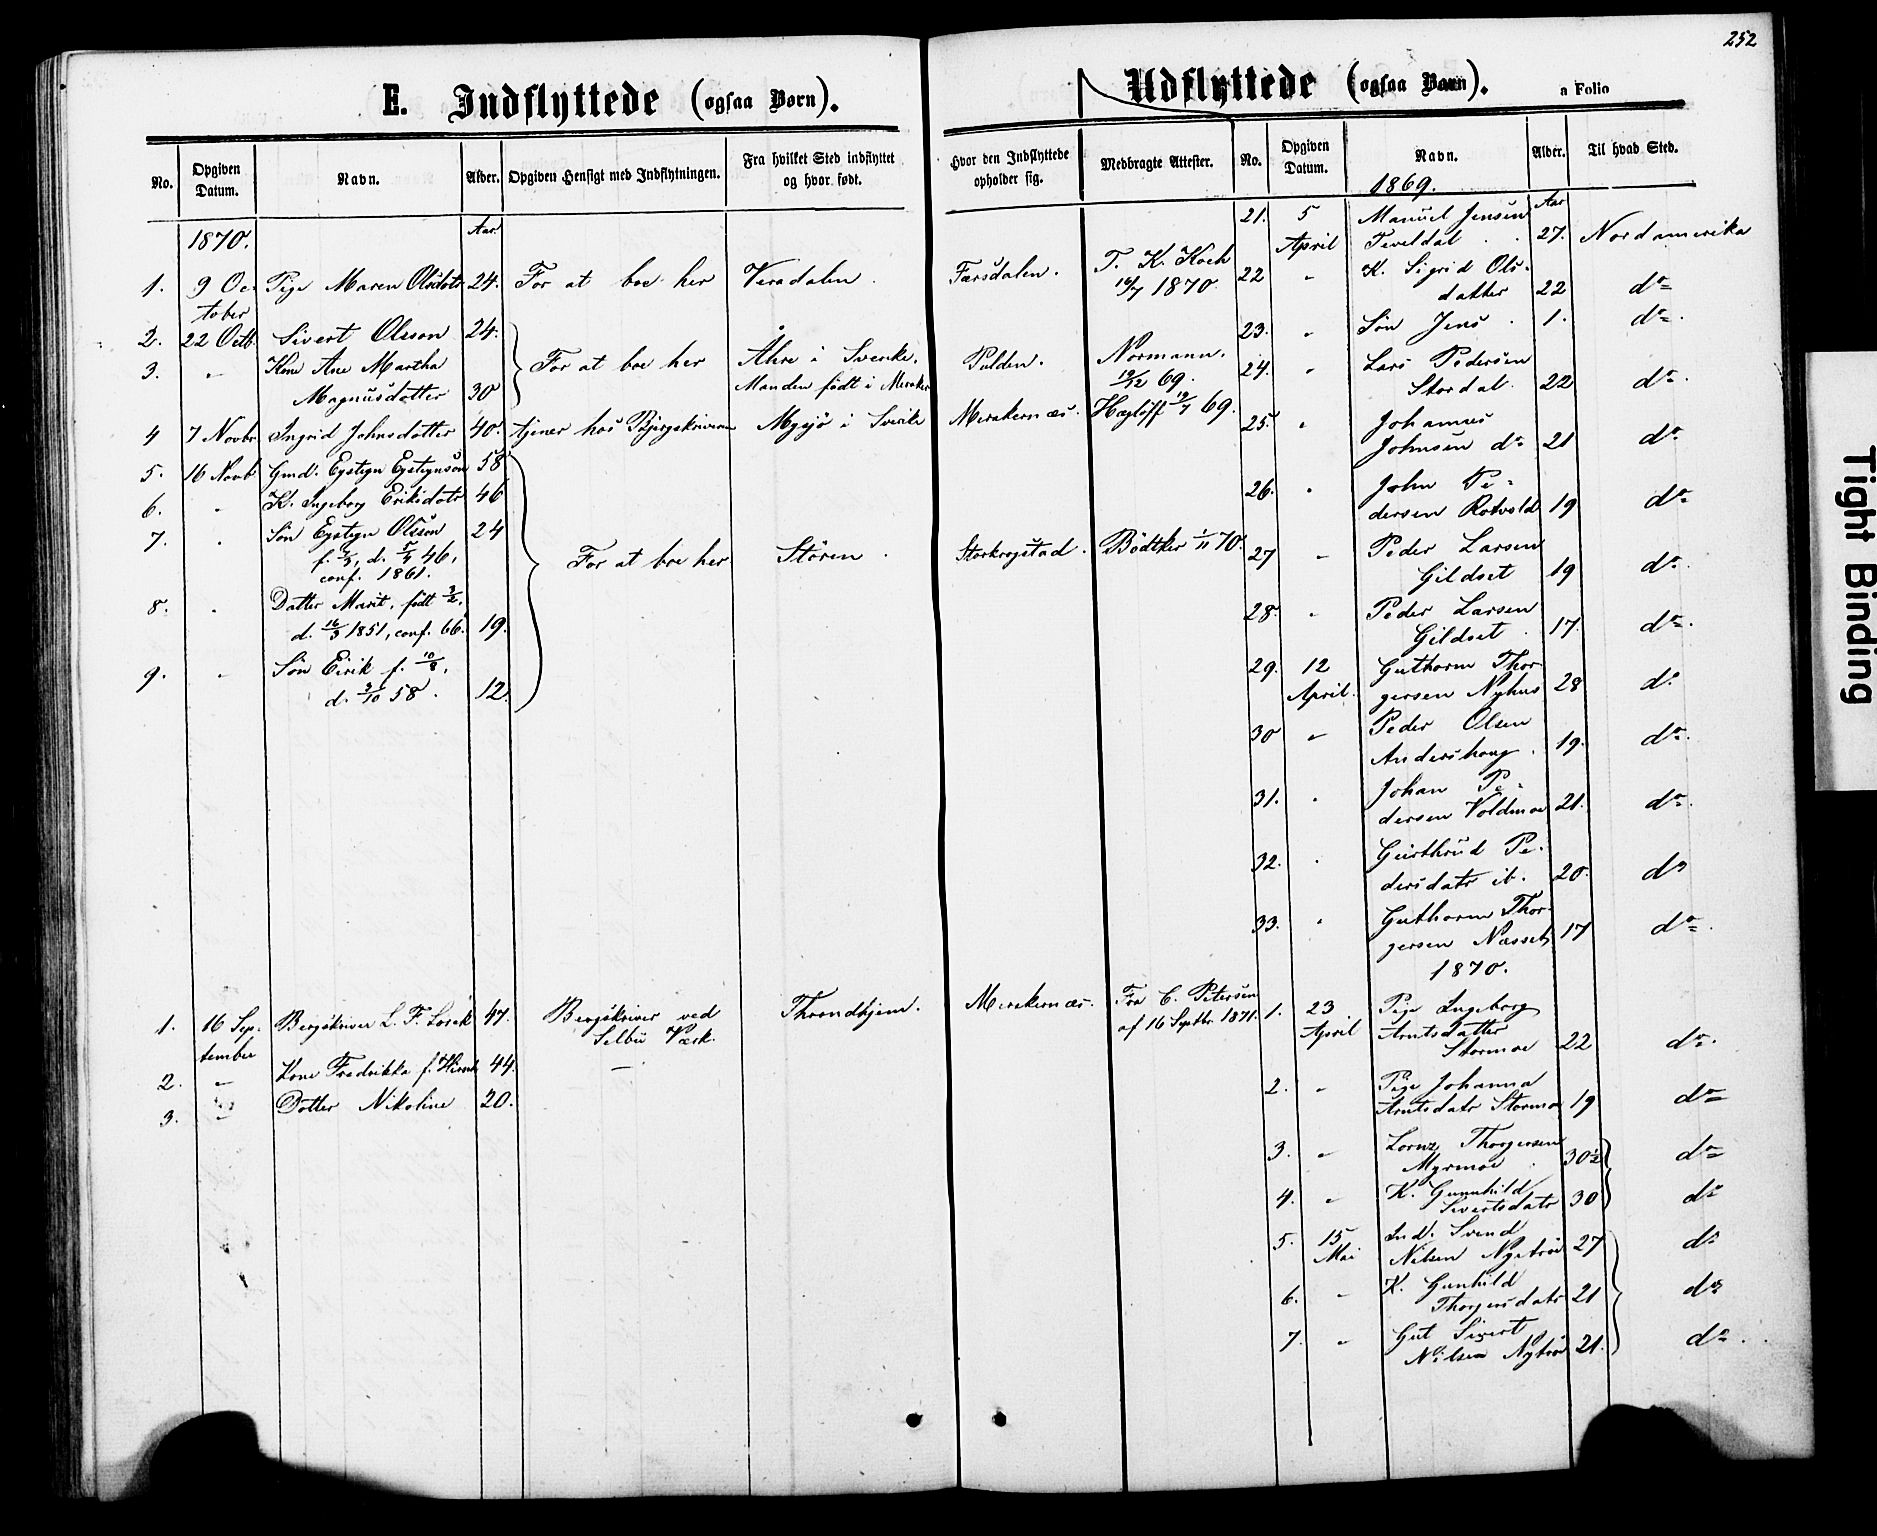 252
E. Indflyttede (ogsaa Børn).
No.
Opgiven Datum.
Navn.
Alder.
Opgiven Hensigt med Indflytningen.
Fra hvilket Sted indflyttet og hvor født.
Hvor den Indflyttede opholder sig.
Medbragte Attester.
1870.
Aar
1. 9 Oc- Pige Maren Olsdatr 24. For at boe her Værdalen. Færsdalen. T. K. Koch
tober 1870.
2. 22 Octb. Sivert Olsson 24.
3. " Kone Ane Martha For at boe her Åhre i Sverike. Pulden. Normann.
Magnusdatter 30 Manden født i Meraker 19/12 69.
4 7 Novbr Ingrid Johnsdatter 40. tjener hos Bjergskriveren i Sverike Merakernæs. 19/7 69.
5. 16 Novb Gmd. Eystegn Eystegnsøn 58
6. " K. Ingeborg Eriksdatr 46
7. " Søn Eystegn Olsson 24 For at boe her Stören. Storkrogstad. Bödtker 1/11 70.
46,
conf. 1861.
8. " Datter Marit, født 2/2,
d. 16/3 1851, conf. 66. 19.
9. " Søn Eirik f. 10/8,
d. 3/10 58. 12.
1. 16 Sep- Bergskriver L. F. 47. Bergskriver ved Throndhjem. Merakernæs. Fra C. Petersen
tember Selbu Værk. af 16 Septbr. 1871.
2. " Kone Fredrikka f. 44. —
3. " Datter Nikoline 20.
Udflyttede (ogsaa Børn).
a Folio
No.
Opgiven Datum.
Navn.
Alder.
Til hvad Sted.
1869.
Aar
21. 5 Manuel Jensen
April Teveldal 27. Nordamerika
22 " K. Sigrid Ols-
datter 22 do
23. " Søn Jens 1. do
24. " Lars Pedersen
Stordal 22 do
25. " Johannes
Johnsen do 21 do
26. " John Pe-
dersen Rotvold 19 do
27 " Peder Larsen
Gildset 19 do
28. " Peder Larsen
Gildset 17. do
29. 12 Guthorm Thor-
April. gersen Nyhus 28 do
30 " Peder Olsen
Andershaug 19. do
31. " Johan Pe-
dersen Voldmoe 21. do
32. " Gurthrud Pe-
dersdatr ib. 20. do
33. " Guthorm Thor-
gersen Næsset 17 do
1870.
1. 23 Pige Ingeborg
April Arntsdatter
Stormoe 22 do
2. " Pige Johanna
Arntsdatr Stormo 19 do
3. " Lornz Thorgersen
Myrmoe 30½ do
4. " K. Gunnhild
Sivertsdatr 30 do
5. 15 Ind. Svend
Mai Nilsen Nybroe 27 do
6. " K. Gunhild
Thorgersdatr 21 do
7. " Gut Sivert
Nilsen Nybroe 21. do
Tight Binding